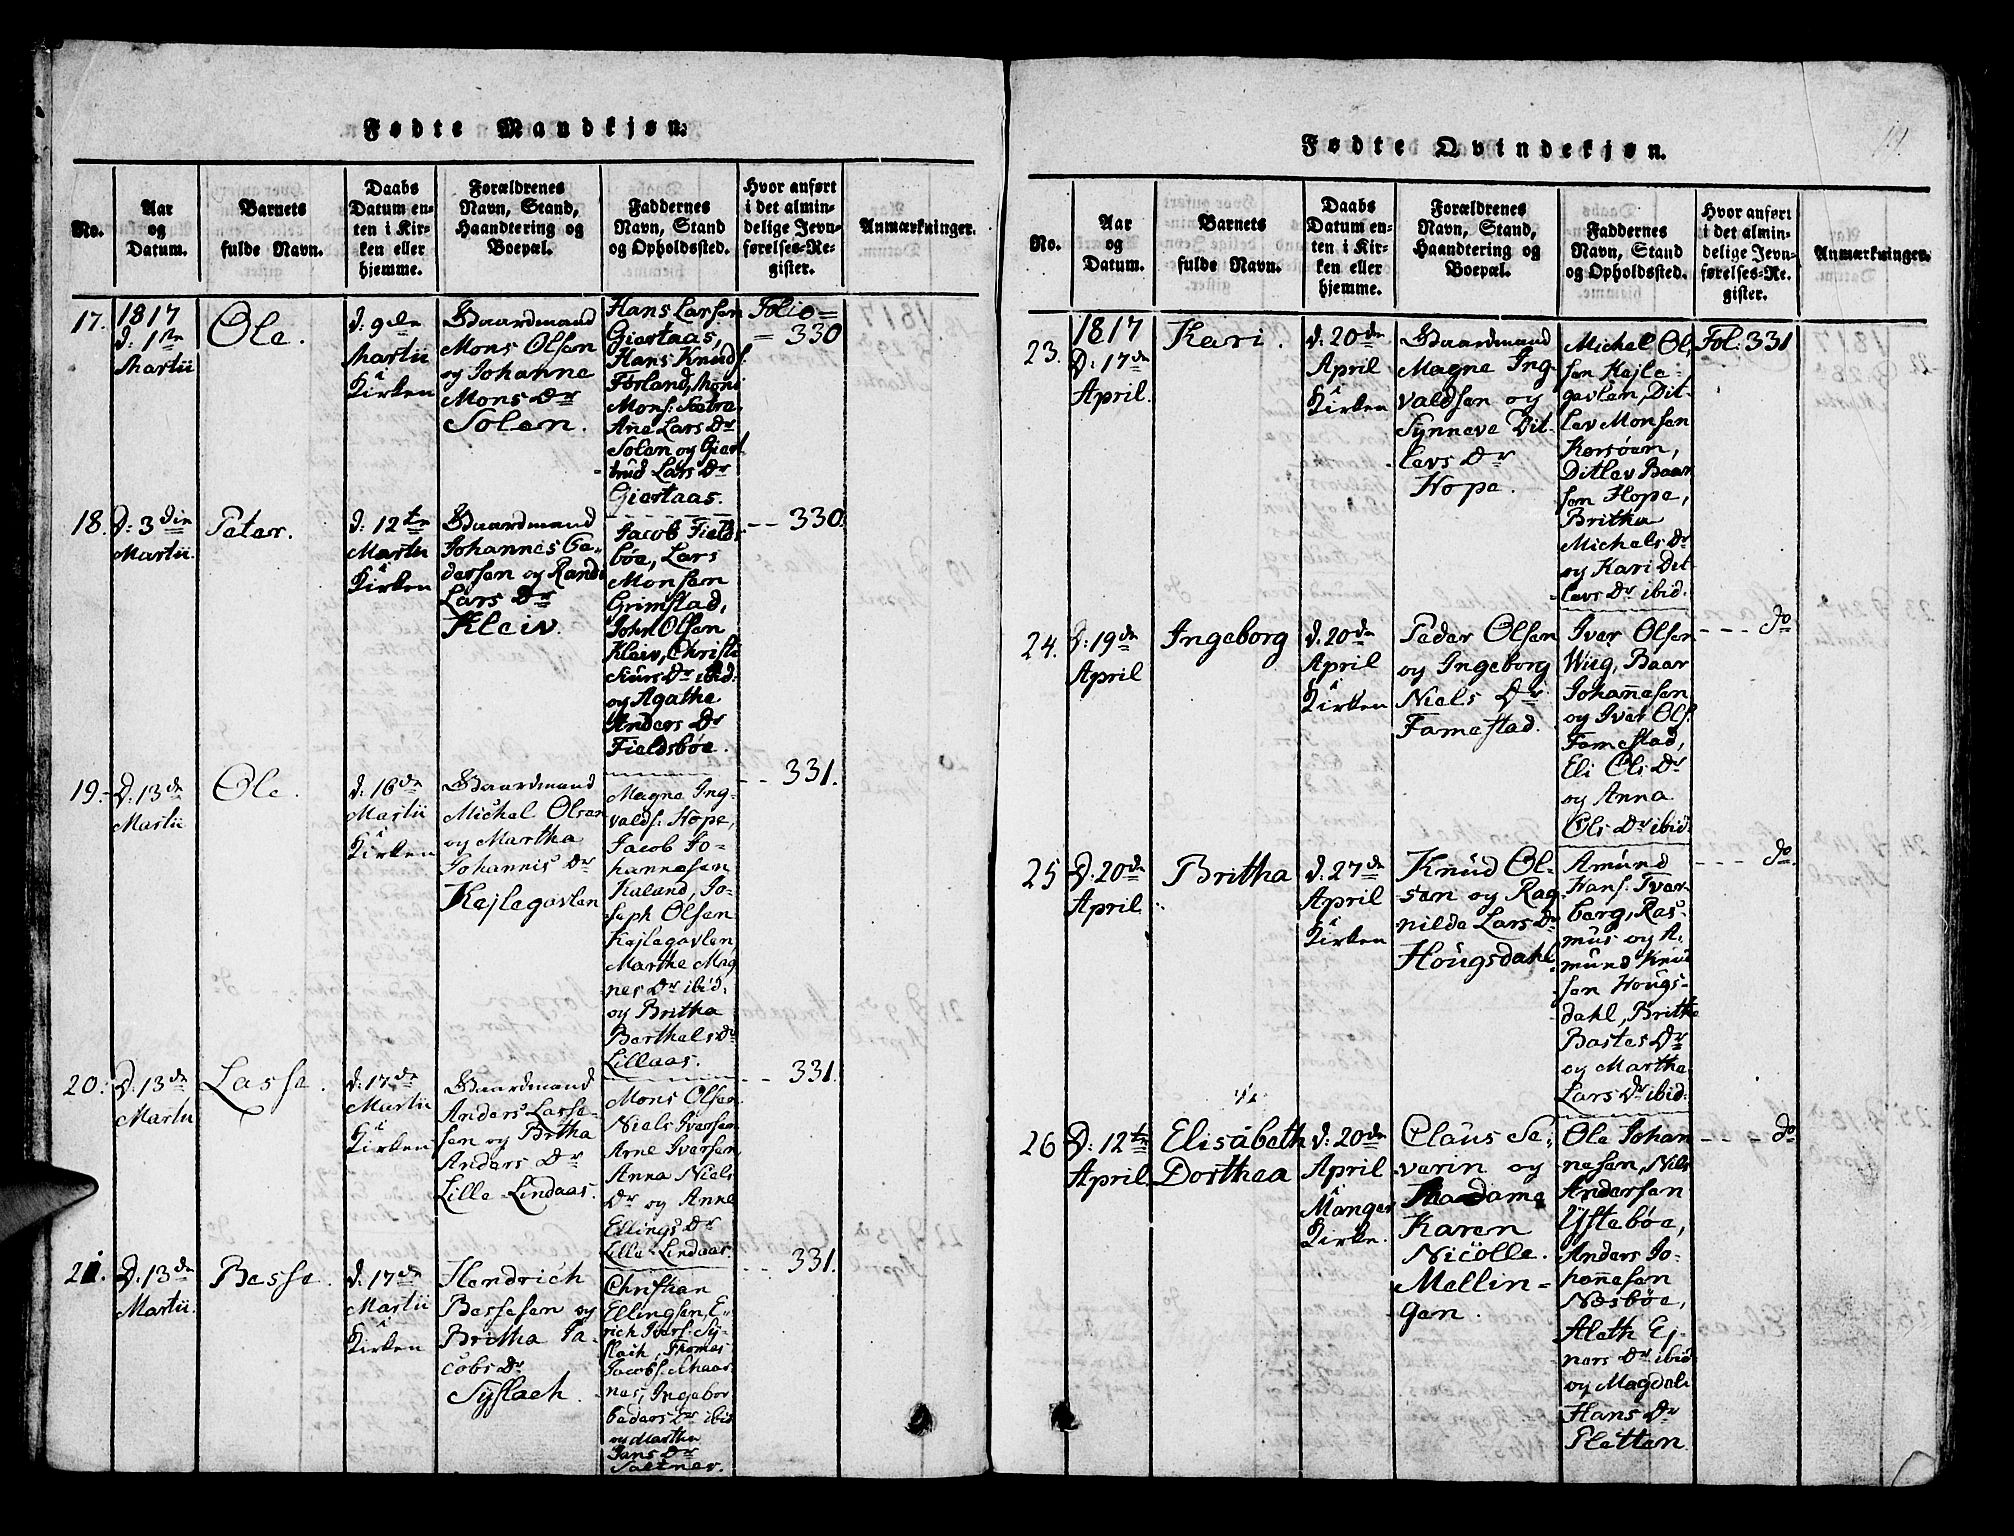 Fødte Mandkjøn.
No.
Aar
og
Datum.
Barnets
fulde Navn.
Daabs
Datum en-
ten i Kir-
ken eller
hjemme.
Forældrenes
Navn, Stand,
Haandtering og
Boepæl.
Faddernes
Navn, Stand
og Opholdssted.
Hvor anført
i det almin-
delige Jevn-
førelses-Re-
gister.
Anmærkninger.
17.
1817
D: 1ste
Martii
Ole.
d: 9de
Martii
i
Kirken
Gaardmand
Mons Olsen
og Johanne
Mons Dr
Solem.
Hans Larsen
Giertaas,
Hans Knuds.
Førland, Mons
Mons: Sætra,
Ane Lars Dr
Solem og Giert
trud Lars Dr
Giertaas.
Folio =
= 330
18.
D: 3die
Martii
Peter.
d: 12te
Martii
i
Kirken
Gaardmand
Johannes Pe-
dersen og Randi
Lars Dr
Kleiv.
Jacob Fields
bøe, Lars
Monsen
Grimstad,
John Olsen
Kleiv, Christi
Siurs Dr ibid:
og Agathe
Anders Dr
Fieldsbøe.
- - 330.
19.
D: 13de
Martii
Ole.
d: 16de
Martii
i
Kirken
Gaardmand
Michel Olsen
og Martha
Johannis Dr
Kejlegavlen
Magne Ing-
valds: Hope,
Jacob Jo-
hannesen
Kaland, Jo-
seph Olsen
Kejlegavlen
Marthe Mag
nes Dr ibid:
og Britha
Berthels Dr
Lillaas.
- - 331.
20.
D: 13de
Martii
Lasse.
d: 17de
Martii
i
Kirken
Gaardmand
Anders Lasse-
sen og Britha
Anders Dr
Lille-Lindaas.
Mons Olsen
Niels Iversen
Arne Iversen
Anna Niels
Dr og Anne
Ellings Dr
Lille-Lindaas.
- - 331.
21.
D: 13de
Martii.
Besse.
d: 17de
Martii
i
Kirken
Hendrich
Bessesen og
Britha Ja-
cobs Dr
Syslach.
Christian
Ellingsen, E-
rich Ivers: Sy-
slach, Thomas
Jacobs:
nes, Ingebor
Peders Dr ibid
og Martha
Jans Dr
- - 331.
Fødte Qvindekjøn.
No.
Aar
og
Datum.
Barnets
fulde Navn.
Daabs
Datum en-
ten i Kir-
ken eller
hjemme.
Forældrenes
Navn, Stand,
Haandtering og
Boepæl.
Faddernes
Navn, Stand
og Opholdssted.
Hvor anført
i det almin-
delige Jevn-
førelses-Re-
gister.
Anmærkninger.
23.
1817
D: 17de
April.
Kari.
d: 20de
April
i
Kirken
Gaardmand
Magne Ing-
valdsen og
Synneve Dit-
levs Dr
Hope.
Michel Ol,
sen Kejle-
gavlen, Dit-
lev Monsen
Korsøen,
Ditlev Baar
sen Hope,
Britha
Michels Dr
og Kari Dit-
levs Dr ibid:
Fol: 331
24.
D: 19de
April
Ingeborg
d: 20de
April
i
Kirken
Peder Olsen
og Ingeborg
Niels Dr
Famestad.
Iver Olsen
Wiig, Baar
Johannesen,
og Iver Ols:
Famestad,
Eli Ols Dr
og Anna
Ols Dr ibid:
- - - do
25
D: 20de
April
Britha
d: 27de
April
i
Kirken
Knud Ol-
sen og Rag
nilde Lars Dr
Hougsdahl
Amund
Hans: Tver-
berg, Ras-
mus og A-
mund Knud
sen Hougs-
dahl, Britha
Bastes Dr
og Martha
Lars Dr ibid:
- - - do
26
D: 12te
April
Elisabeth
Dorthea
d: 20de
April
i
Manger
Kirke.
Claus Se-
verin og
Madame
Karen
Nicolle.
Mellin-
gen.
Ole Johan
nesen, Niels
Andersen
Ystebøe,
Anders Jo-
hannesen
Næsbøe,
Aleth Ej-
ners Dr ibid
og Magdeli
Hans Dr
Pletten
- - - do